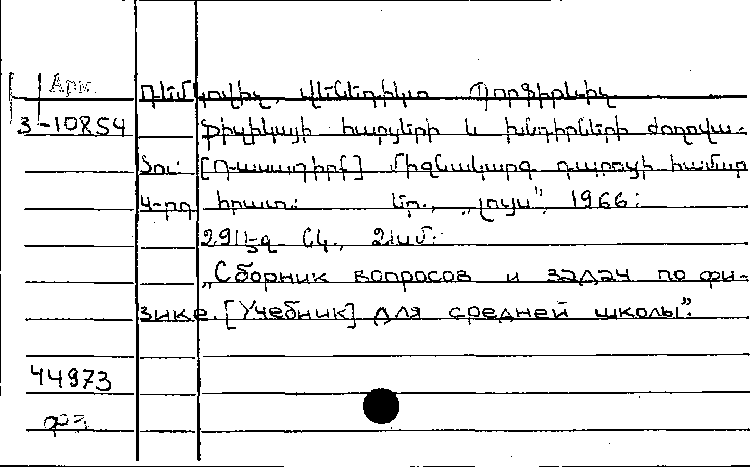 Арм.
Դեմկովիչ, Վենեդիկտ Պորֆիրևիչ
3-10854 Ֆիզիկայի հարցերի և խնդիրների ժողովա-
ծու: [Դասագիրք] միջնակարգ դպրոցի համար
4-րդ հրատ. Եր., „Լույս”, 1966:
291 էջ. 21սմ:
„Сборник вопросов и задач по фи-
зике. [Учебник] для средней школы”.
44973